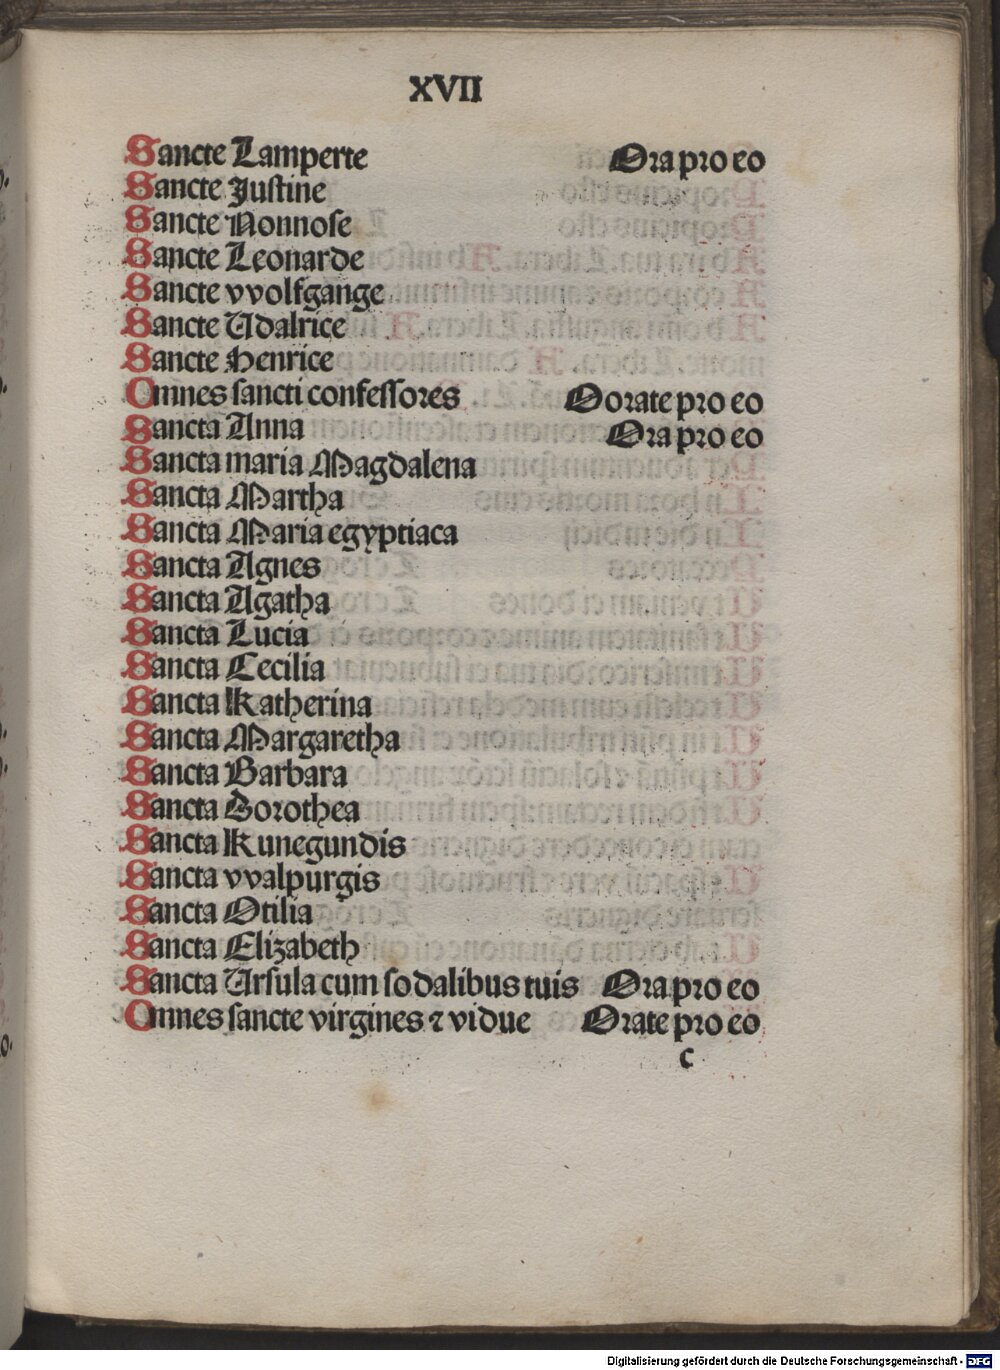 XVII
Sancte Lamperte Ora pro eo
Sancte Justine
Sancte Nonnose
Sancte Leonarde
Sancte vvolfgange
Sancte Udalrice
Sancte Henrice
Omnes sancti confessores Oorate pro eo
Sancta Anna Ora pro eo
Sancta maria Magdalena
Sancta Martha
Sancta Maria egyptiaca
Sancta Agnes
Sancta Agatha
Sancta Lucia
Sancta Cecilia
Sancta Katherina
Sancta Margaretha
Sancta Barbara
Sancta Dorothea
Sancta Kunegundis
Sancta vvalpurgis
Sancta Otilia
Sancta Elizabeth
Sancta Ursula cum sodalibus tuis Ora pro eo
Omnes sancte virgines ⁊ vidue Orate pro eo
c
Digitalisierung gefördert durch die Deutsche Forschungsgemeinschaft - DFG